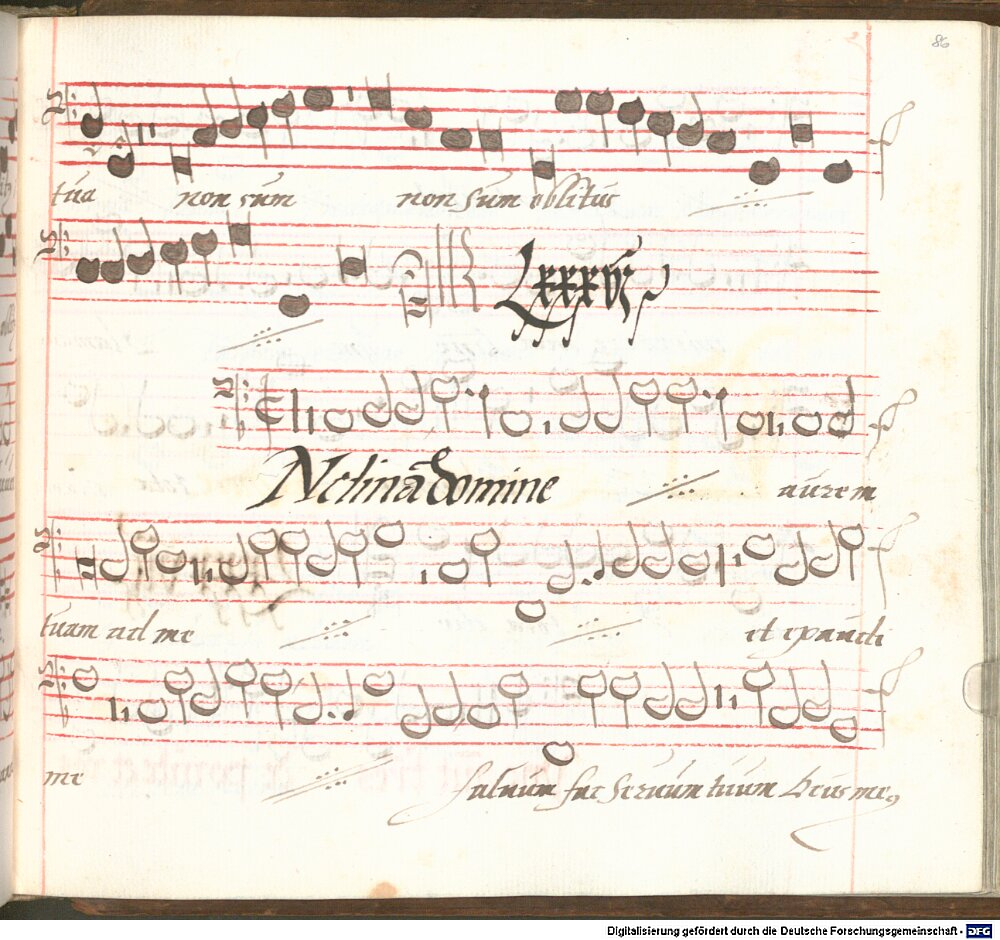 86
tua non sum non sum oblitus
Lxxxvj
Nclina domine aurem
tuam ad me et exaudi
me saluum fac seruum tuum deus meus
Digitalisierung gefördert durch die Deutsche Forschungsgemeinschaft - DFG